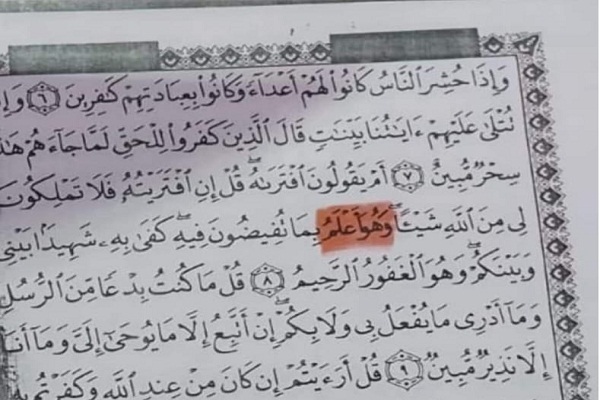 وَإِذَا حُشِرَ ٱلنَّاسُ كَانُوا۟ لَهُمْ أَعْدَآءً وَكَانُوا۟ بِعِبَادَتِهِمْ كَٰفِرِينَ ٦
تُتْلَىٰ عَلَيْهِمْ ءَايَٰتُنَا بَيِّنَٰتٍ قَالَ ٱلَّذِينَ كَفَرُوا۟ لِلْحَقِّ لَمَّا جَآءَهُمْ هَٰذَا
سِحْرٌ مُّبِينٌ ٧ أَمْ يَقُولُونَ ٱفْتَرَىٰهُ ۖ قُلْ إِنِ ٱفْتَرَيْتُهُۥ فَلَا تَمْلِكُونَ
لِى مِنَ ٱللَّهِ شَيْـًٔا ۖ وَهُوَ أَعْلَمُ بِمَا تُفِيضُونَ فِيهِ ۖ كَفَىٰ بِهِۦ شَهِيدًۢا بَيْنِى
وَبَيْنَكُمْ ۖ وَهُوَ ٱلْغَفُورُ ٱلرَّحِيمُ ٨ قُلْ مَا كُنتُ بِدْعًا مِّنَ ٱلرُّسُلِ
وَمَآ أَدْرِى مَا يُفْعَلُ بِى وَلَا بِكُمْ ۖ إِنْ أَتَّبِعُ إِلَّا مَا يُوحَىٰٓ إِلَىَّ وَمَآ أَنَا۠
إِلَّا نَذِيرٌ مُّبِينٌ ٩ قُلْ أَرَءَيْتُمْ إِن كَانَ مِنْ عِندِ ٱللَّهِ وَكَفَرْتُم بِهِۦ